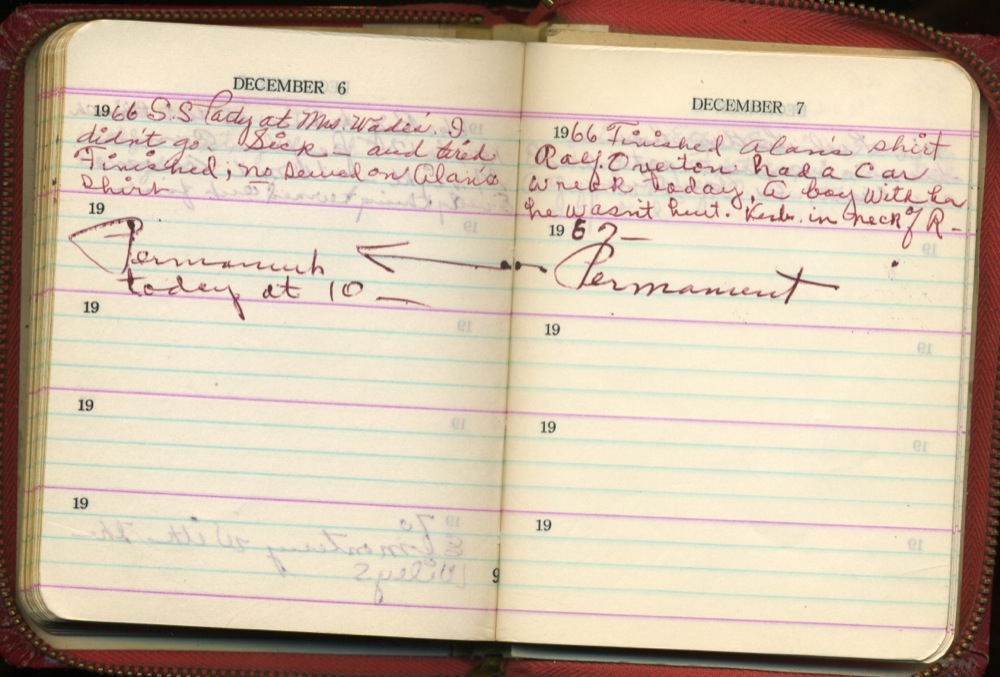 DECEMBER 6
1966 S.S lady at Mrs. Wades. I
didn't go. Sick - and tired
Finished, no sewed on Alan's
shirt
19
Permanent
today at 10 —
19
19
19
DECEMBER 7
1966 Finished Alan's shirt
Overton had a car
wreck today, a boy with her
he wasn't hurt. in neck of R-
1967-
Permanent
19
19
19
9